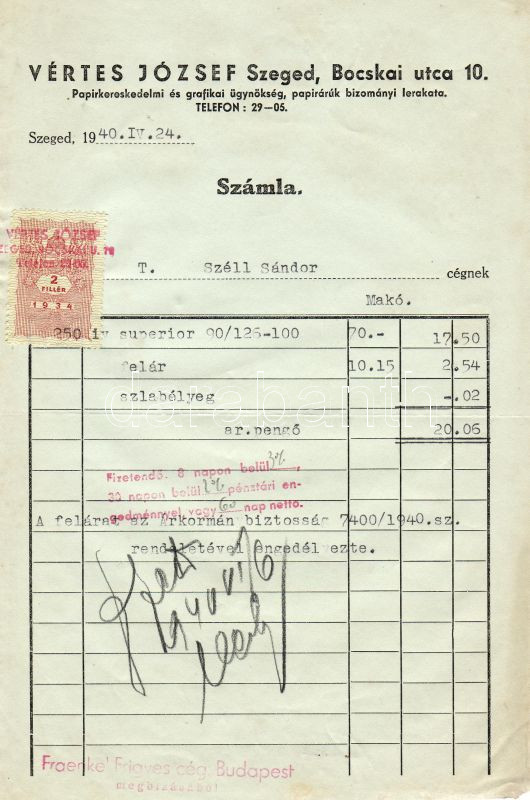 VÉRTES JÓZSEF Szeged, Bocskai utca 10.
Papirkereskedelmi és grafikai ügynökség, papirárúk bizományi lerakata.
TELEFON: 29—05.
Szeged, 1940.IV.24.
Számla.
VÉRTES JÓZSEF
SZEGED, BOCSKAI U. 10
Telefon 29-05.
2
FILLÉR
1934
T. Széll Sándor cégnek
Makó.
250 iv superior 90/126-100 70.- 17.50
felár 10.15 2.54
szlabélyeg -.02
ar.pengő 20.06
Fizetendő. 8 napon belül 3%,
30 napon belül 2% pénztári en-
gedménnyel, vagy 60 nap netto.
A felárat az Árkormán biztosság 7400/1940.sz.
rendeletével engedélyezte.
1940 VI/6
Frigyes cég, Budapest
megbízásából
darabanth